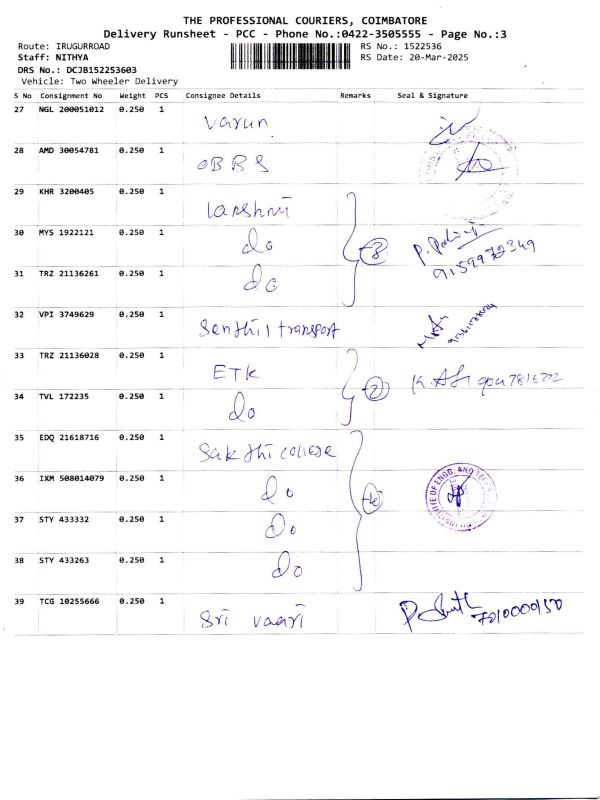 THE PROFESSIONAL COURIERS, COIMBATORE
Delivery Runsheet - PCC - Phone No.:0422-3505555 - Page No.:3
Route: IRUGURROAD RS No.: 1522536
Staff: NITHYA RS Date: 20-Mar-2025
DRS No.: DCJB152253603
Vehicle: Two Wheeler Delivery
S No Consignment No Weight PCS Consignee Details Remarks Seal & Signature
27 NGL 200051012 0.250 1 Varun
28 AMD 30054781 0.250 1 OBBS
29 KHR 3200405 0.250 1 Lakshmi
30 MYS 1922121 0.250 1 do 3
31 TRZ 21136261 0.250 1 do
32 VPI 3749629 0.250 1 Senthil transport
33 TRZ 21136028 0.250 1 ETK
34 TVL 172235 0.250 1 do 2
35 EDQ 21618716 0.250 1 Sakthi college
36 IXM 508014079 0.250 1 do
37 STY 433332 0.250 1 do
38 STY 433263 0.250 1 do
39 TCG 10255666 0.250 1 Sri vaari 7010000150